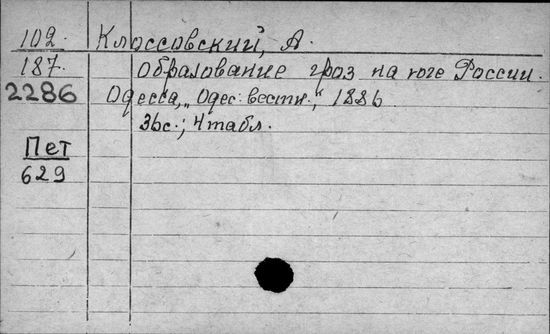 102. Клоссовский, А.
187. Образование гроз на юге России.
2286 Одесса, „Одес. вестн.", 1886
36с.; 4 табл.
Пет
629